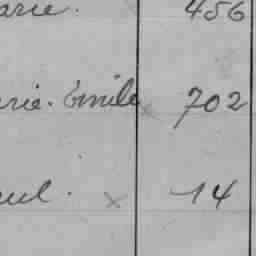 arie. 456
rie. Emile 702
14